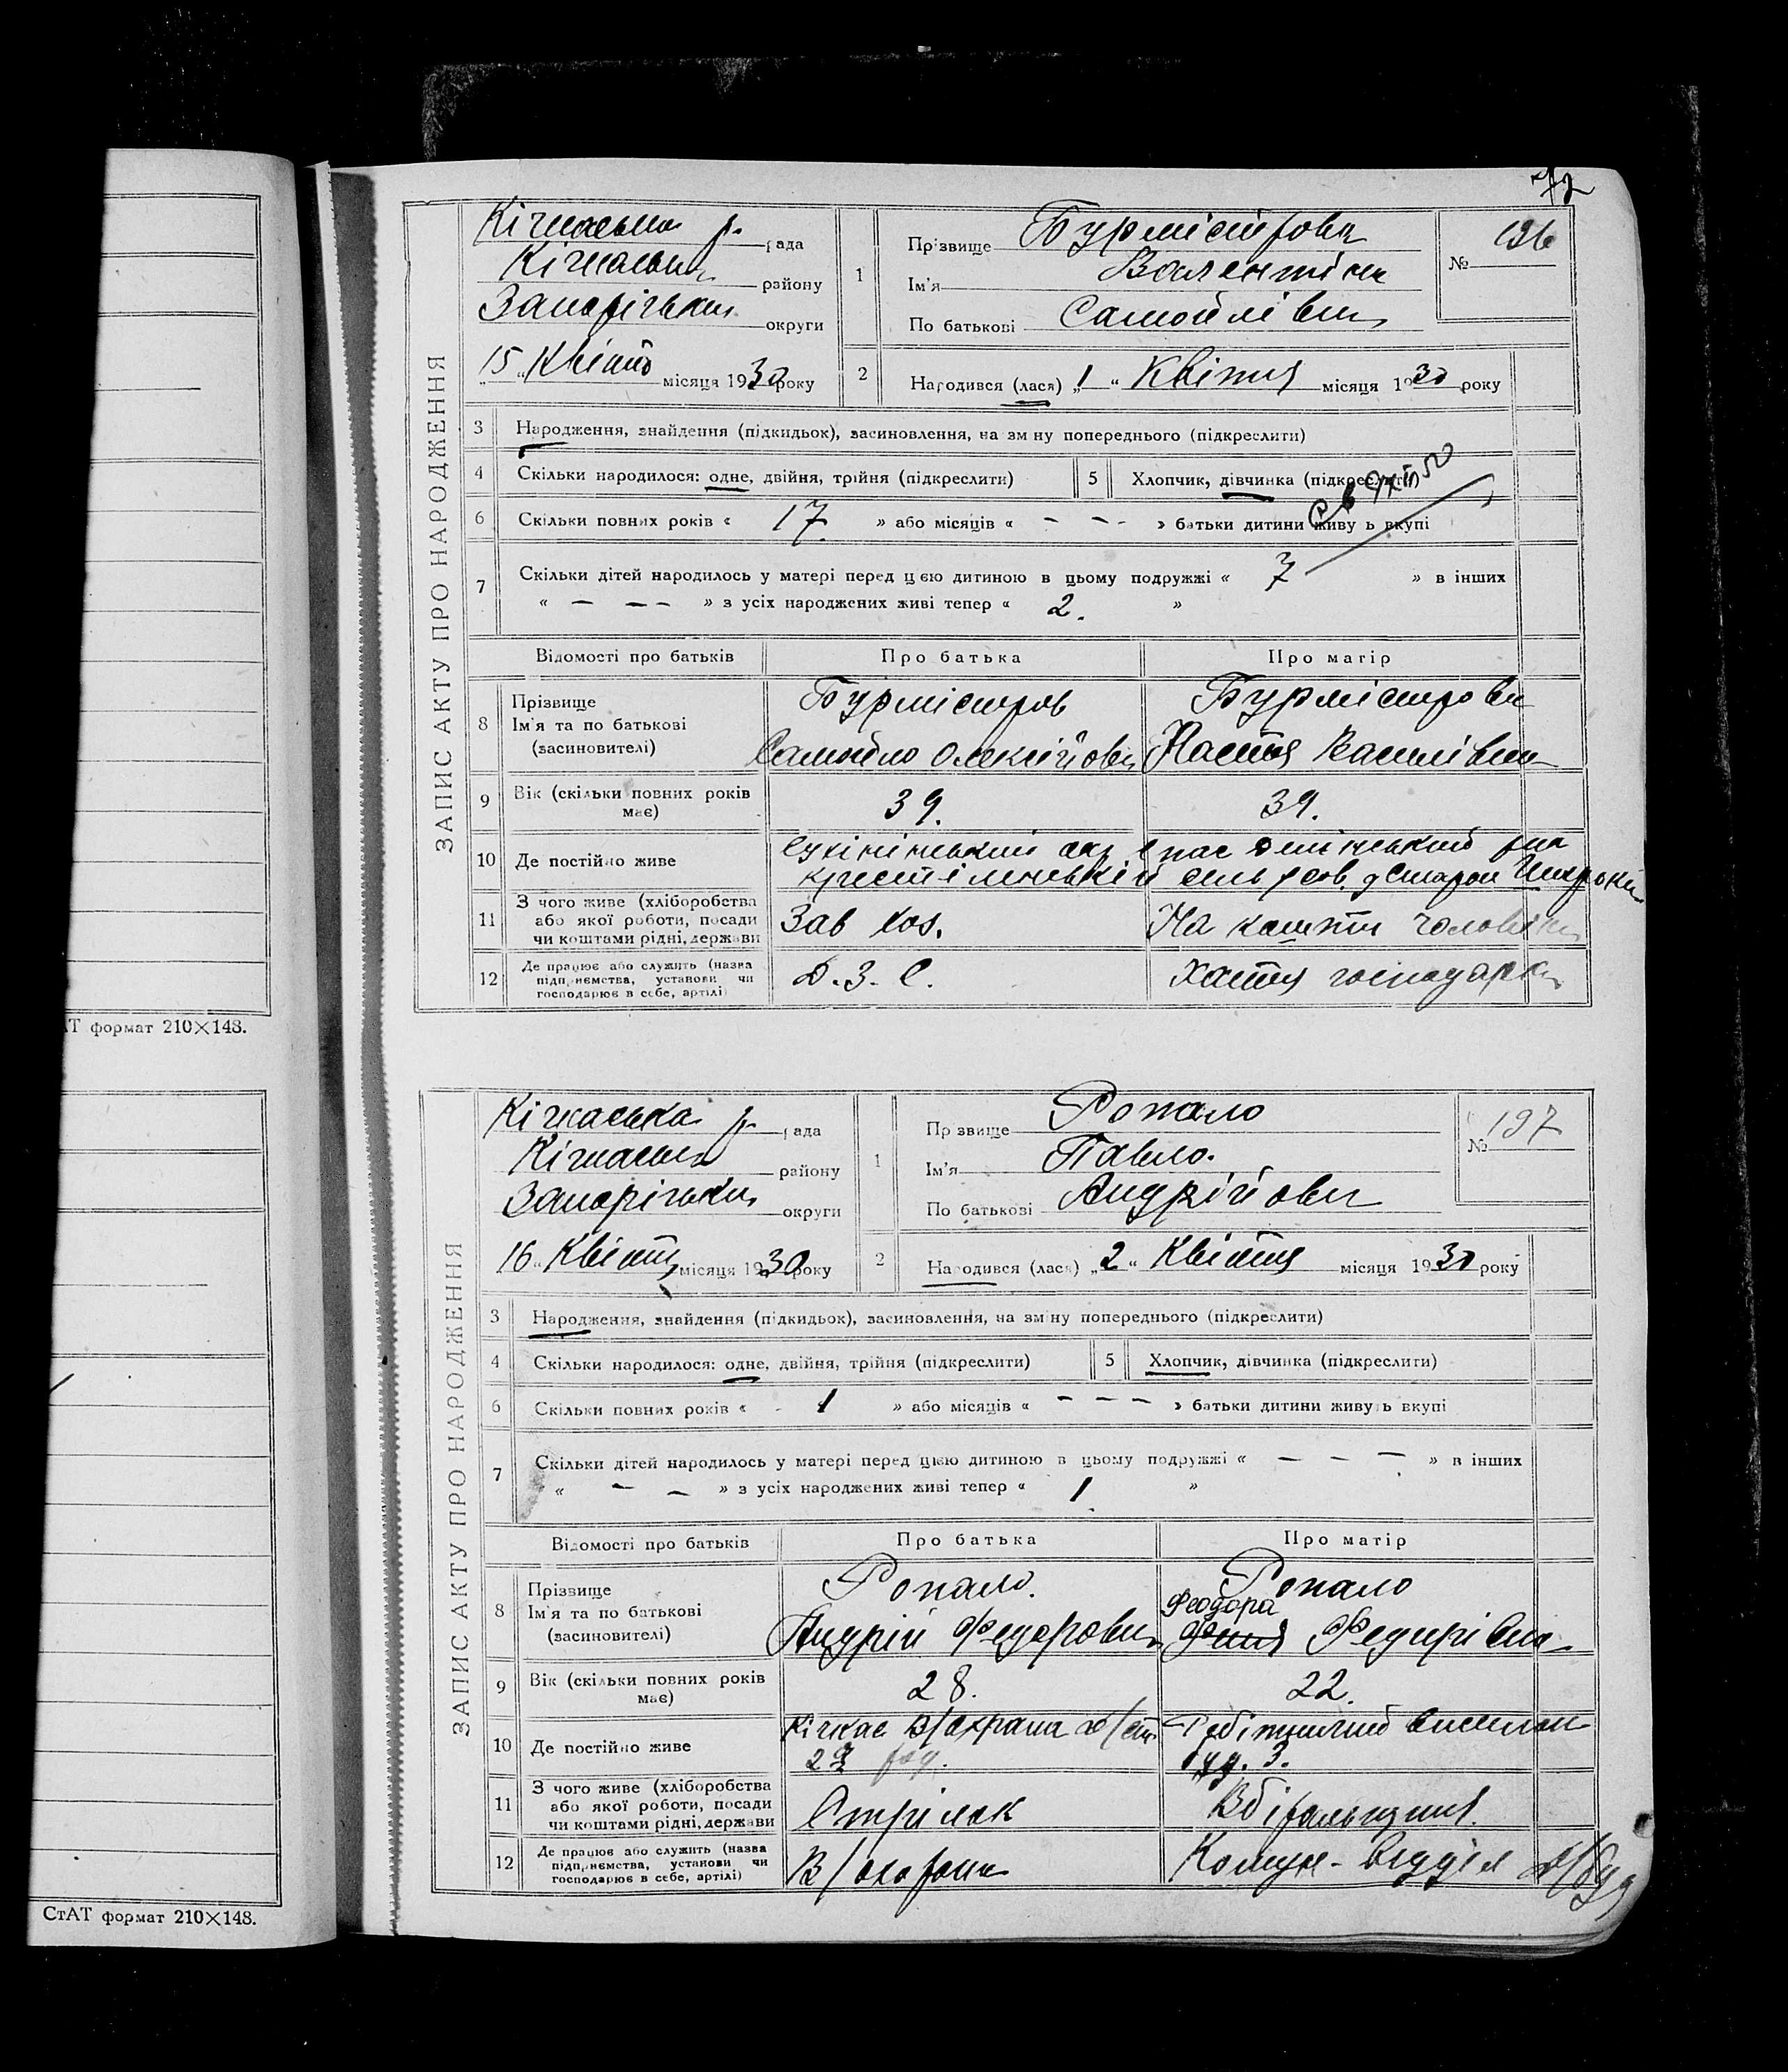 72
ЗАПИС АКТУ ПРО НАРОДЖЕННЯ
Кічкаська р. рада
Кічкаськ району
Запоріжськ округи
„15“ Квітн місяця 1930 року
1 Прізвище Бурмістрова
Ім'я Валентина
По батькові Самойлівна
№ 196
2 Народився (лася) „1“ Квітня місяця 1930 року
3 Народження, знайдення (підкидьок), засиновлення, на зміну попереднього (підкреслити)
4 Скільки народилося: одне, двійня, трійня (підкреслити) 5 Хлопчик, дівчинка (підкреслити)
6 Скільки повних років « 17. » або місяців « - - - » батьки дитини живуть вкупі
7 Скільки дітей народилось у матері перед цією дитиною в цьому подружжі « 7 » в інших
« — — — » з усіх народжених живі тепер « 2. »
Відомості про батьків Про батька Про матір
8 Прізвище
Ім'я та по батькові
(засиновителі)
Бурмістров
Самойло Олексійович
Бурмістрова
Настя Василівна
9 Вік (скільки повних років має) 39. 39.
10 Де постійно живе
11 З чого живе (хліборобства або якої роботи, посади чи коштами рідні, держави
Зав хоз. На кошти чоловіка
12 Де працює або служить (назва підприємства, установи чи господарює в себе, артілі)
Д.З.С. Хатня господарка
АТ формат 210×148.
ЗАПИС АКТУ ПРО НАРОДЖЕННЯ
Кічкаська р. рада
Кічкаськ району
Запоріжськ округи
16 “ Квітн місяця 1930 року
1 Прізвище Ропало
Ім'я Павло.
По батькові Андрійович
№ 197
2 Народився (лася) „2“ Квітня місяця 1930 року
3 Народження, знайдення (підкидьок), засиновлення, на зміну попереднього (підкреслити)
4 Скільки народилося: одне, двійня, трійня (підкреслити) 5 Хлопчик, дівчинка (підкреслити)
6 Скільки повних років « 1 » або місяців « - - - » батьки дитини живуть вкупі
7 Скільки дітей народилось у матері перед цією дитиною в цьому подружжі « — — — » в інших
« — — » з усіх народжених живі тепер « 1. »
Відомості про батьків Про батька Про матір
8 Прізвище
Ім'я та по батькові
(засиновителі)
Ропало.
Андрій Федорович
Ропало
Феодора
Федирівна
9 Вік (скільки повних років має) 28. 22.
10 Де постійно живе
Кічкас В/охрана
буд. 3.
11 З чого живе (хліборобства або якої роботи, посади чи коштами рідні, держави
Стрілок Вбіральниця.
12 Де працює або служить (назва підприємства, установи чи господарює в себе, артілі)
В/охорона Комун-відділ Д/буд
СтАТ формат 210×148.